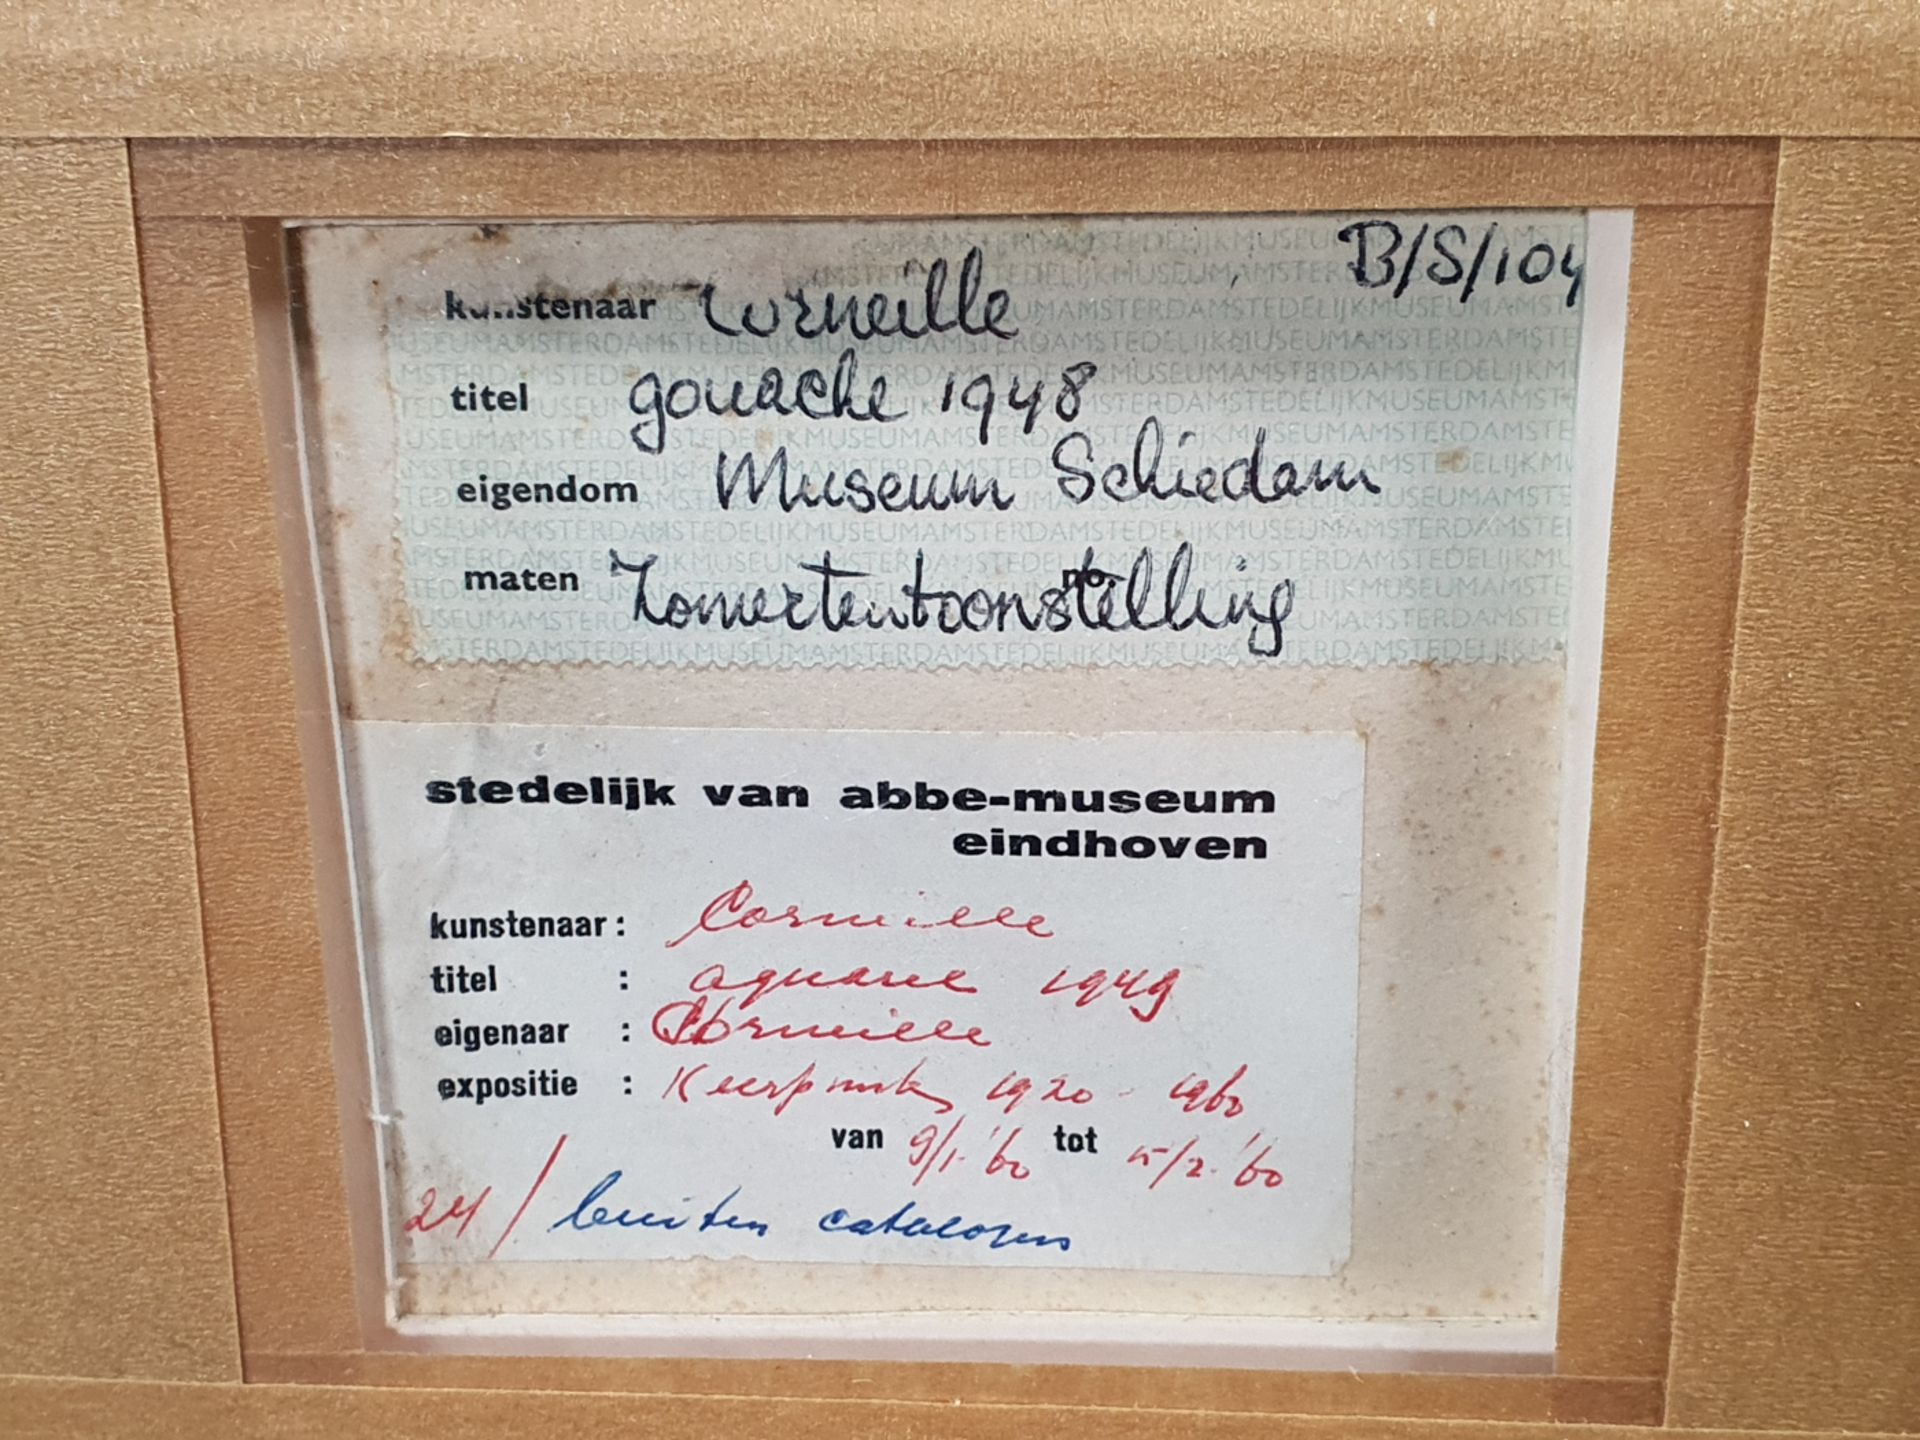 B/S/104
kunstenaar Corneille
titel gouache 1948
eigendom Museum Schiedam
maten no. Zomertentoonstelling
stedelijk van abbe-museum
eindhoven
kunstenaar: Corneille
titel : aquarel 1949
eigenaar : Corneille
expositie : Keerpunten 1920-1960
van 9/1-'60 tot 15/2-'60
24/ buiten catalogus